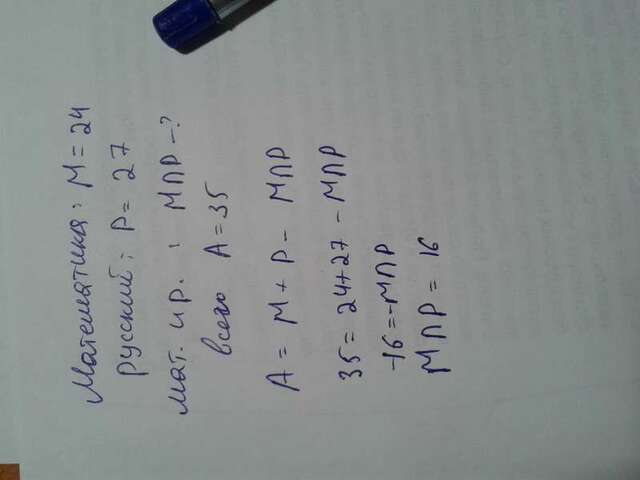 Математика: М = 24
Русский: Р = 27
мат. и р. : М∩Р - ?
всего А = 35
А = М + Р - М∩Р
35 = 24+27 - М∩Р
-16 = -М∩Р
М∩Р = 16